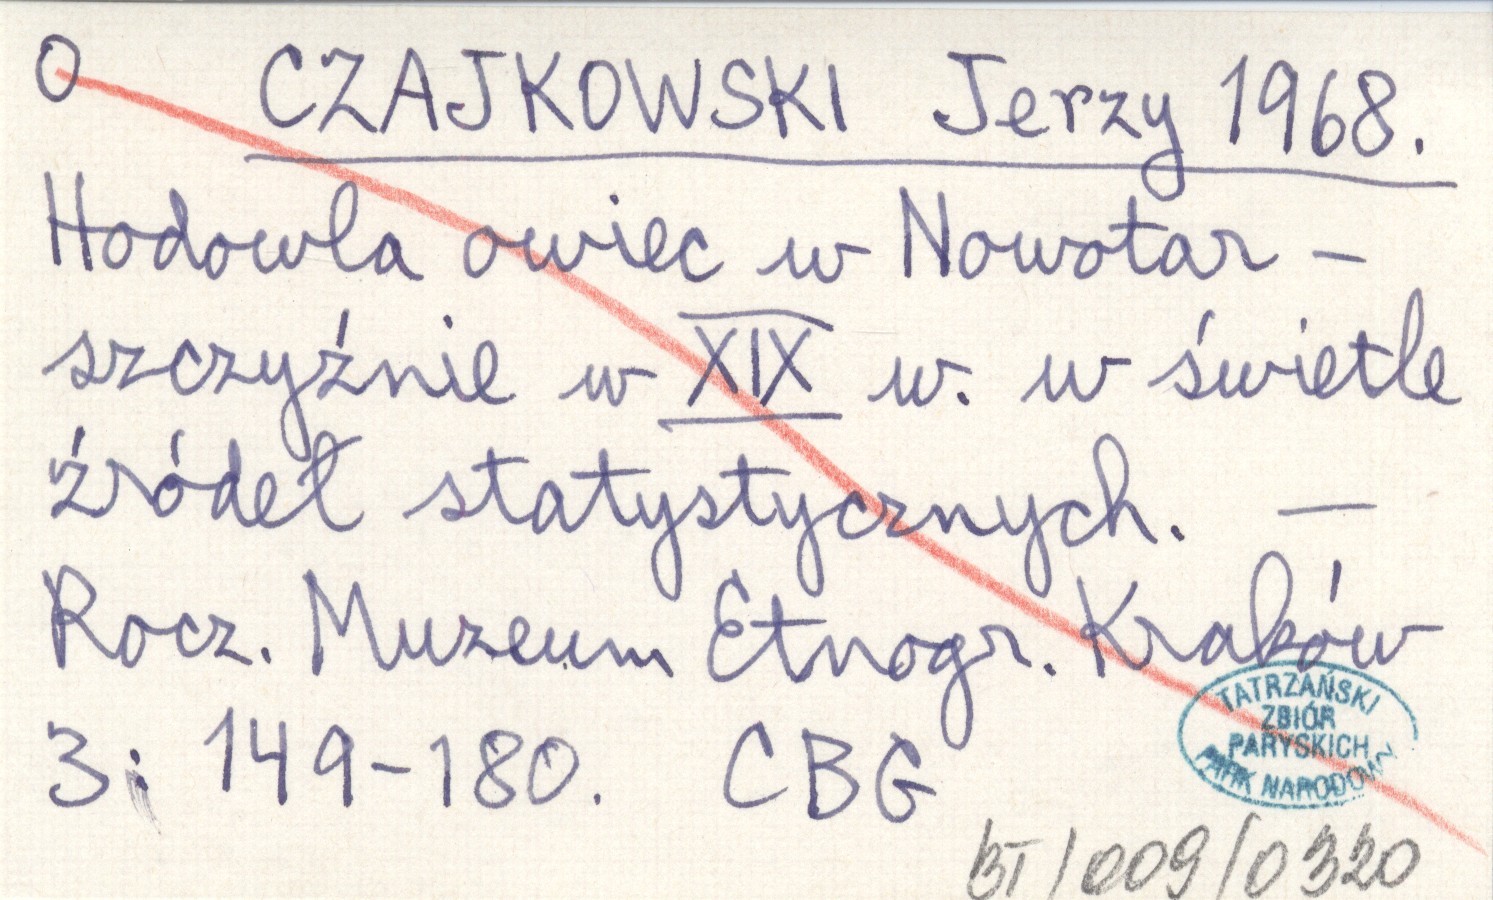 O CZAJKOWSKI Jerzy 1968.
Hodowla owiec w Nowotar-
szczyźnie w XIX w. w świetle
źródeł statystycznych. —
Rocz. Muzeum Etnogr. Kraków
3: 149-180. CBG
TATRZAŃSKI
ZBIÓR
PARYSKICH
PARK NARODOWY
BT/009/0320